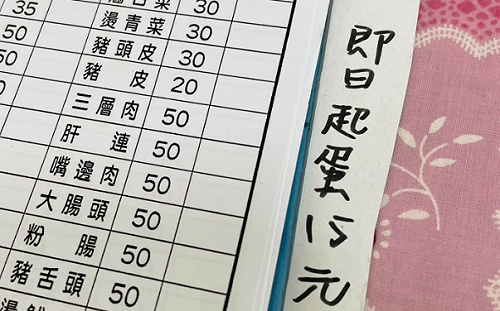 35
30
50
燙青菜 30
豬頭皮 30
豬皮 20
三層肉 50
肝連 50
嘴邊肉 50
大腸頭 50
粉腸 50
豬舌頭 50
即日起蛋15元